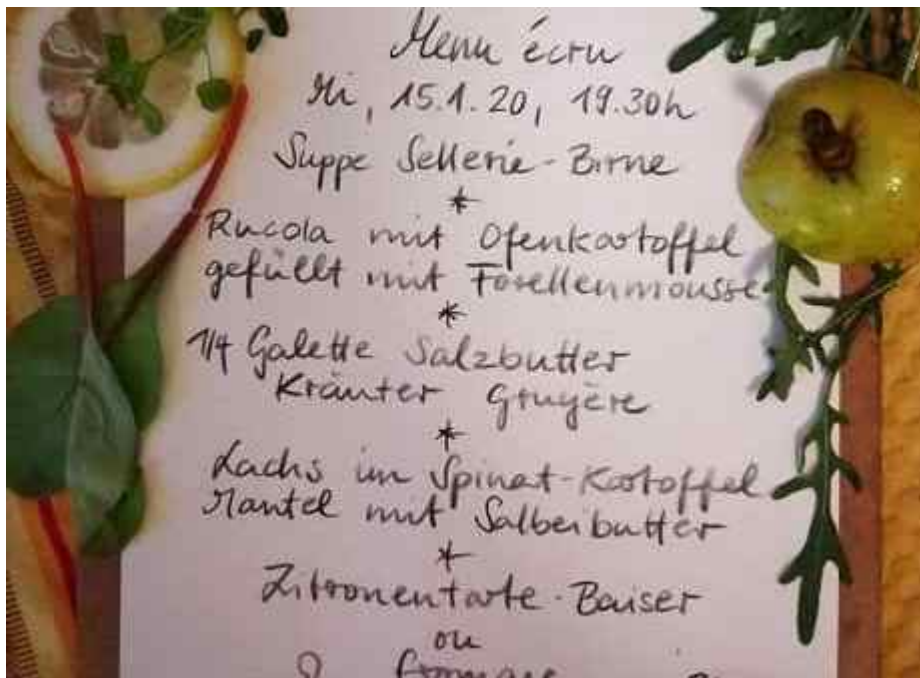 Menu écru
Mi, 15.1.20, 19.30h
Suppe Sellerie-Birne
*
Rucola mit Ofenkartoffel
gefüllt mit Forellenmousse
*
1/4 Galette Salzbutter
Kräuter Gruyère
*
Lachs im Spinat-Kartoffel
Mantel mit Salbeibutter
*
Zitronentarte-Baiser
ou